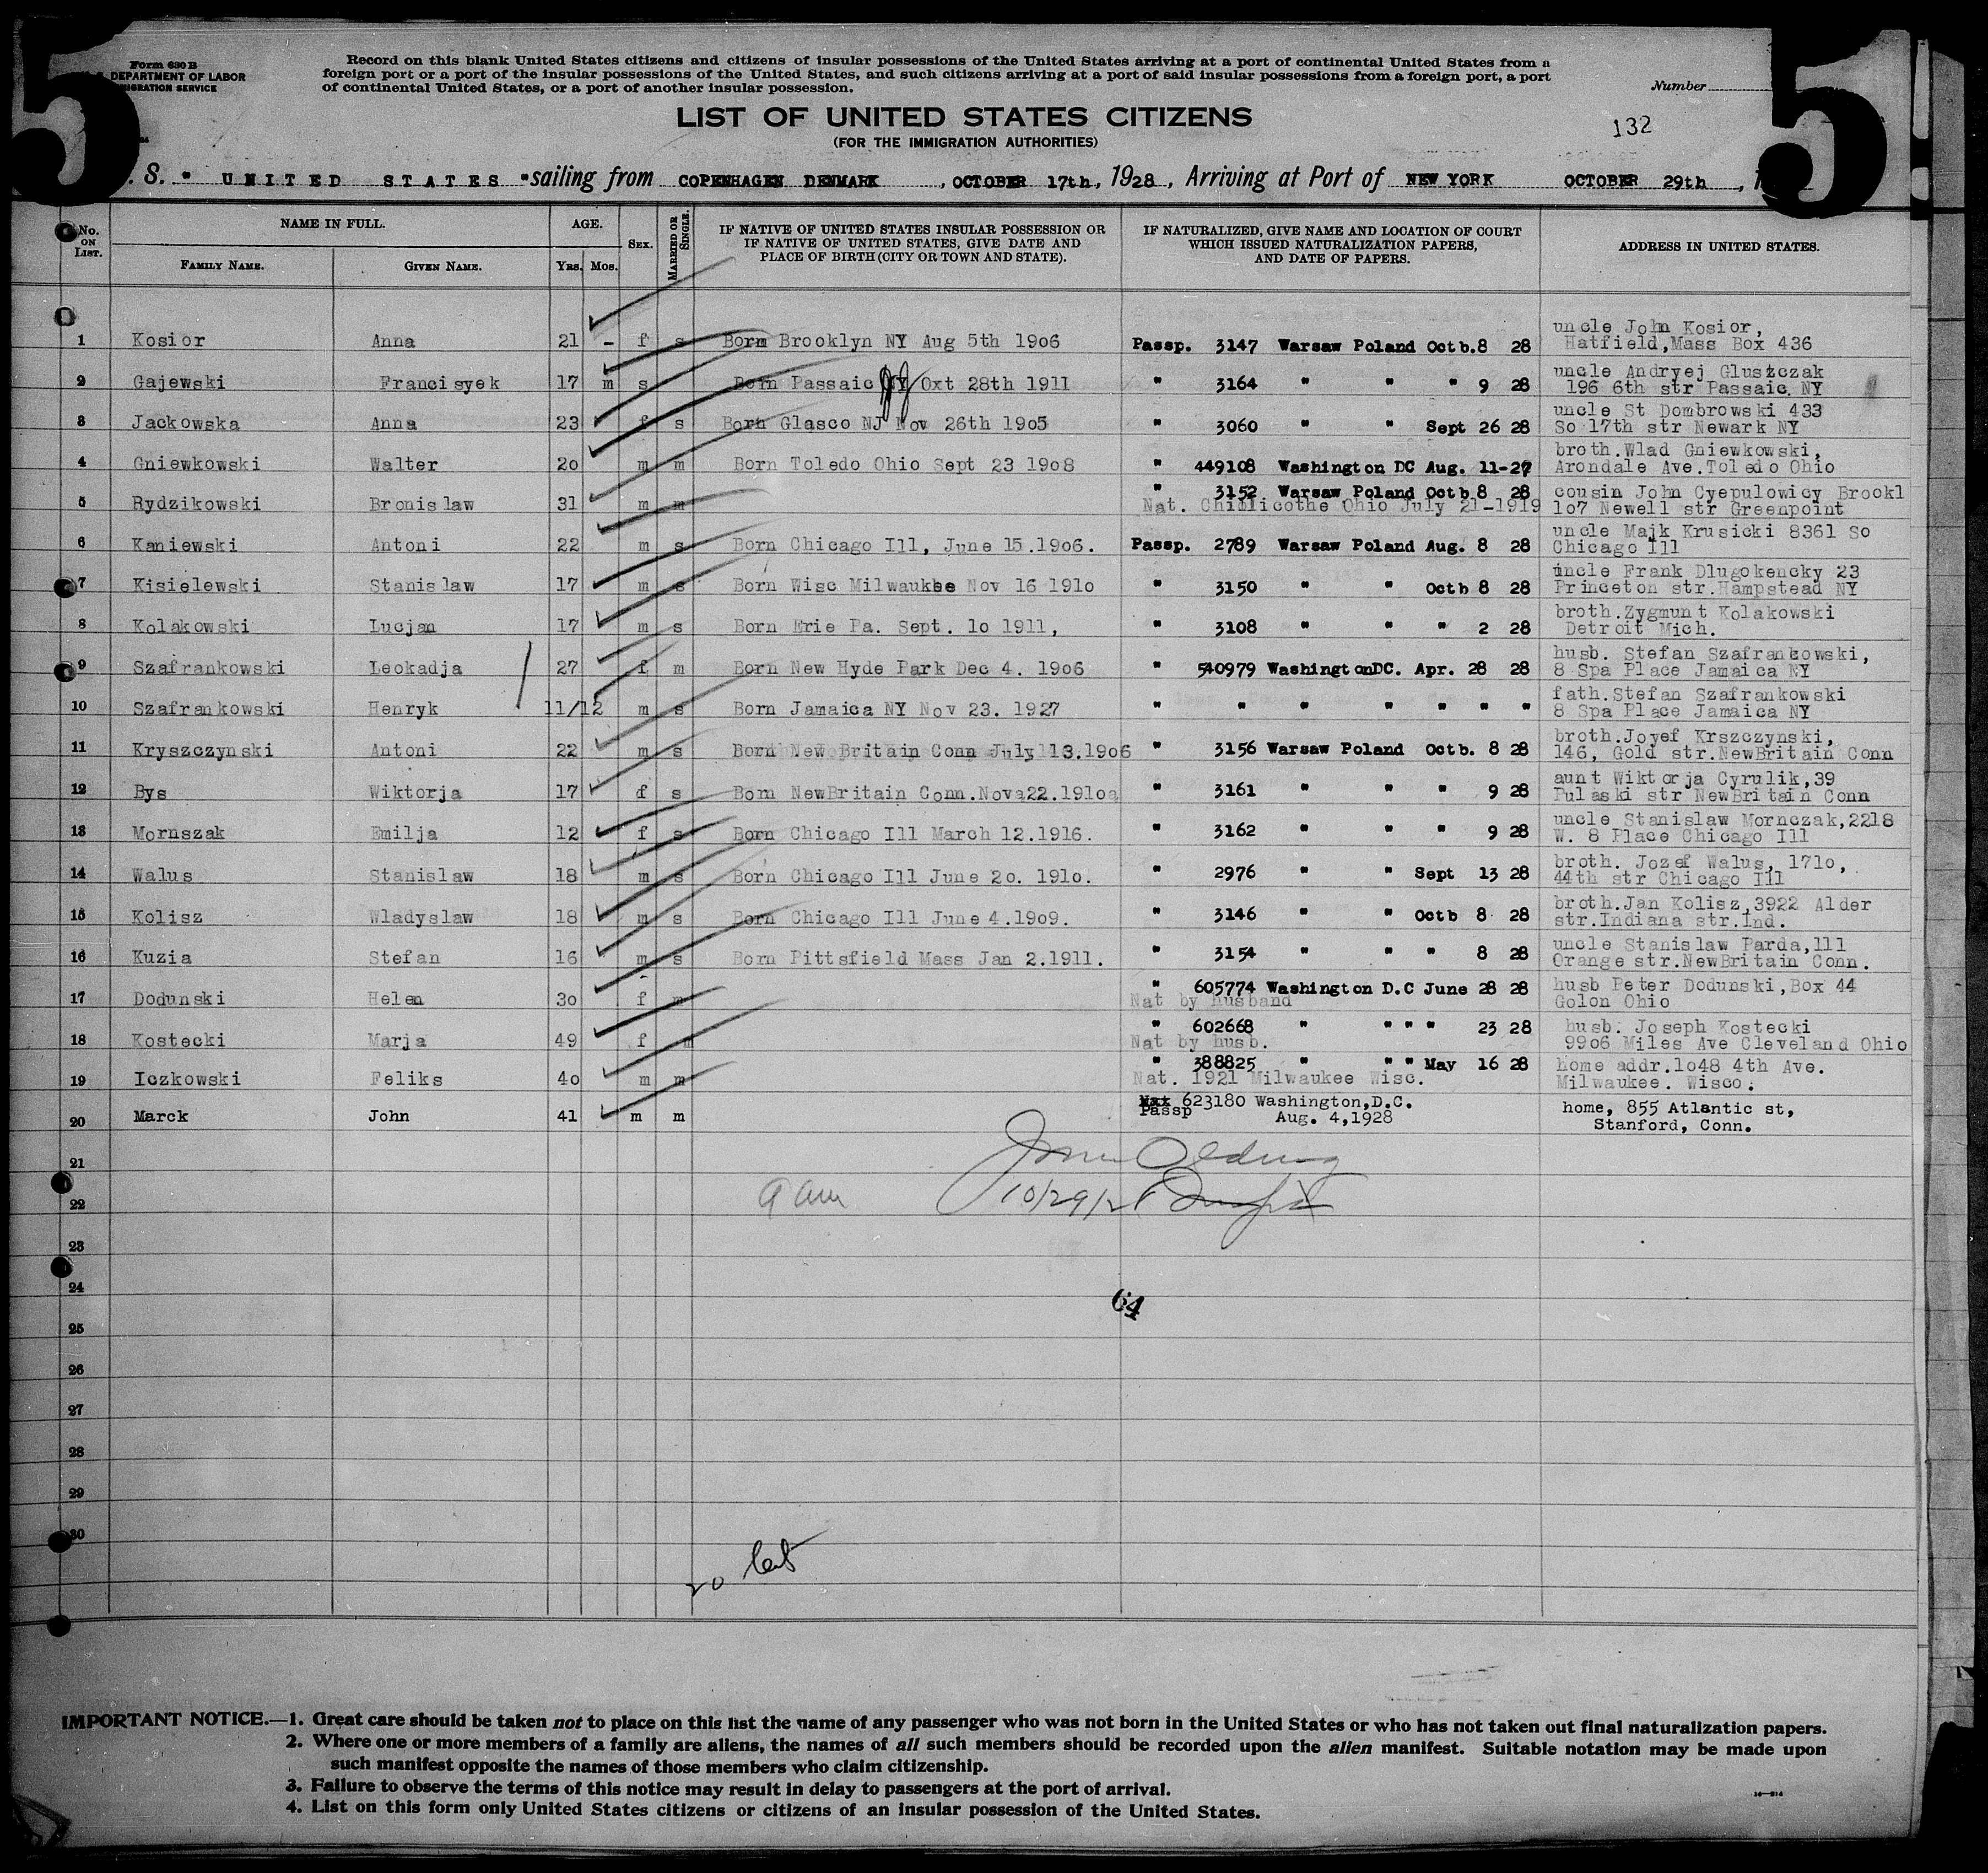 5
5
Form 630 B
DEPARTMENT OF LABOR
IMMIGRATION SERVICE
Record on this blank United States citizens and citizens of insular possessions of the United States arriving at a port of continental United States from a
foreign port or a port of the insular possessions of the United States, and such citizens arriving at a port of said insular possessions from a foreign port, a port
of continental United States, or a port of another insular possession.
Number
LIST OF UNITED STATES CITIZENS
(FOR THE IMMIGRATION AUTHORITIES)
132
. S. " UNITED STATES " sailing from COPENHAGEN DENMARK , OCTOBER 17th, 1928, Arriving at Port of NEW YORK OCTOBER 29th , 1
No. ON LIST. NAME IN FULL. AGE. SEX. MARRIED OR SINGLE. IF NATIVE OF UNITED STATES INSULAR POSSESSION OR IF NATIVE OF UNITED STATES, GIVE DATE AND PLACE OF BIRTH (CITY OR TOWN AND STATE). IF NATURALIZED, GIVE NAME AND LOCATION OF COURT WHICH ISSUED NATURALIZATION PAPERS, AND DATE OF PAPERS. ADDRESS IN UNITED STATES.
FAMILY NAME. GIVEN NAME. YRS. MOS.
1 Kosior Anna 21 - f s Born Brooklyn NY Aug 5th 1906 Passp. 3147 Warsaw Poland Octb.8 28 uncle John Kosior, Hatfield,Mass Box 436
2 Gajewski Francisyek 17 m s Born Passaic NY Oxt 28th 1911 " 3164 " " " 9 28 uncle Andryej Gluszczak 196 6th str Passaic, NY
3 Jackowska Anna 23 f s Born Glasco NJ Nov 26th 1905 " 3060 " " Sept 26 28 uncle St Dombrowski 433 So 17th str Newark NY
4 Gniewkowski Walter 20 m m Born Toledo Ohio Sept 23 1908 " 449108 Washington DC Aug. 11-27 broth.Wlad Gniewkowski, Arondale Ave.Toledo Ohio
5 Rydzikowski Bronislaw 31 m m " 3152 Warsaw Poland Octb 8 28 Nat. Chillicothe Ohio July 21-1919 cousin John Cyepulowicy Brookl 107 Newell str Greenpoint
6 Kaniewski Antoni 22 m s Born Chicago Ill, June 15.1906. Passp. 2789 Warsaw Poland Aug. 8 28 uncle Majk Krusicki 8361 So Chicago Ill
7 Kisielewski Stanislaw 17 m s Born Wisc Milwaukee Nov 16 1910 " 3150 " " Octb 8 28 uncle Frank Dlugokencky 23 Princeton str.Hampstead NY
8 Kolakowski Lucjan 17 m s Born Erie Pa. Sept. 10 1911, " 3108 " " " 2 28 broth.Zygmunt Kolakowski Detroit Mich.
9 Szafrankowski Leokadja 27 f m Born New Hyde Park Dec 4. 1906 " 540979 WashingtonDC. Apr. 28 28 husb. Stefan Szafrankowski, 8 Spa Place Jamaica NY
10 Szafrankowski Henryk 11/12 m s Born Jamaica NY Nov 23. 1927 " " " " " " " fath.Stefan Szafrankowski 8 Spa Place Jamaica NY
11 Kryszczynski Antoni 22 m s Born New Britain Conn July 13.1906 " 3156 Warsaw Poland Octb. 8 28 broth.Joyef Krszczynski, 146, Gold str.NewBritain Conn
12 Bys Wiktorja 17 f s Born NewBritain Conn.Nov 22.1910 " 3161 " " " 9 28 aunt Wiktorja Cyrulik,39 Pulaski str NewBritain Conn
13 Mornszak Emilja 12 f s Born Chicago Ill March 12.1916. " 3162 " " " 9 28 uncle Stanislaw Mornczak,2218 W. 8 Place Chicago Ill
14 Walus Stanislaw 18 m s Born Chicago Ill June 20. 1910. " 2976 " " Sept 13 28 broth. Jozef Walus, 1710, 44th str Chicago Ill
15 Kolisz Wladyslaw 18 m s Born Chicago Ill June 4.1909. " 3146 " " Octb 8 28 broth.Jan Kolisz,3922 Alder str.Indiana str.Ind.
16 Kuzia Stefan 16 m s Born Pittsfield Mass Jan 2.1911. " 3154 " " " 8 28 uncle Stanislaw Parda,111 Orange str.NewBritain Conn.
17 Dodunski Helen 30 f m " 605774 Washington D.C June 28 28 Nat by husband husb Peter Dodunski,Box 44 Golon Ohio
18 Kostecki Marja 49 f m " 602668 " " " " 23 28 Nat by husb. husb. Joseph Kostecki 9906 Miles Ave Cleveland Ohio
19 Iczkowski Feliks 40 m m " 388825 " " " May 16 28 Nat. 1921 Milwaukee Wisc. home addr.1048 4th Ave. Milwaukee. Wisco.
20 Marck John 41 m m Passp 623180 Washington,D.C. Aug. 4,1928 home, 855 Atlantic st, Stanford, Conn.
21
22 9 am 10/29/28
23
24
64
25
26
27
28
29
30
20
IMPORTANT NOTICE.—1. Great care should be taken not to place on this list the name of any passenger who was not born in the United States or who has not taken out final naturalization papers.
2. Where one or more members of a family are aliens, the names of all such members should be recorded upon the alien manifest. Suitable notation may be made upon
such manifest opposite the names of those members who claim citizenship.
3. Failure to observe the terms of this notice may result in delay to passengers at the port of arrival.
4. List on this form only United States citizens or citizens of an insular possession of the United States.